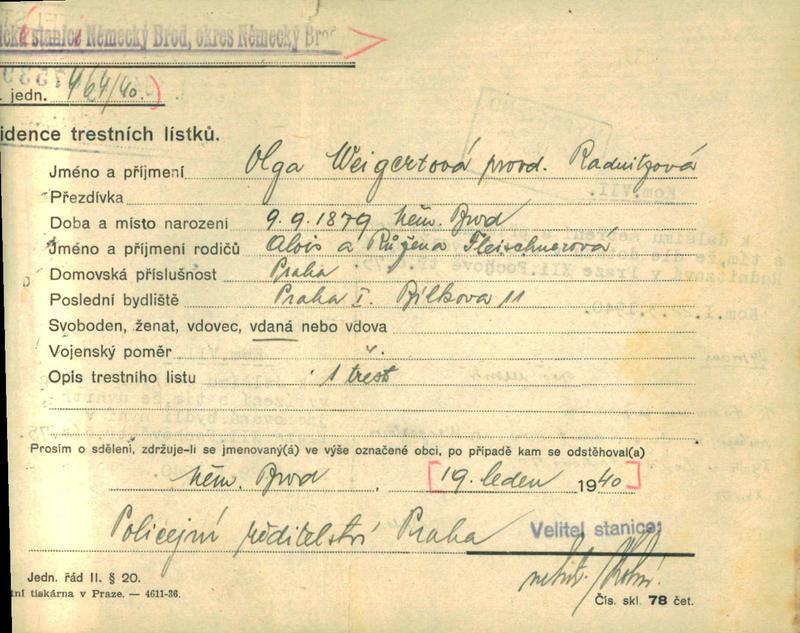 stanice Německý Brod, okres Německý Brod
jedn. 464/40.
idence trestních lístků.
Jméno a příjmení Olga Weigertová provd. Radnitzová
Přezdívka
Doba a místo narození 9.9.1879 Něm. Brod
Jméno a příjmení rodičů Alois a Růžena Fleischnerová
Domovská příslušnost Praha
Poslední bydliště Praha I. Bílkova 11
Svoboden, ženat, vdovec, vdaná nebo vdova
Vojenský poměr
Opis trestního listu 1 trest
Prosím o sdělení, zdržuje-li se jmenovaný(á) ve výše označené obci, po připadě kam se odstěhoval(a)
Něm. Brod, [19. leden 1940]
Policejní ředitelství Praha
Velitel stanice:
Jedn. řád II. § 20.
tní tiskárna v Praze. — 4611-36.
Čís. skl. 78 čet.